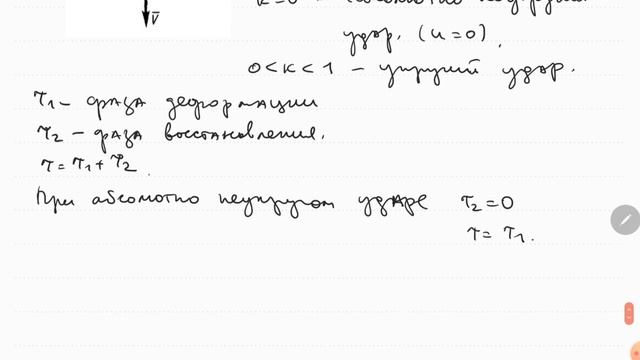 k=0 - абсолютно неупругий
удар. (u=0).
0<k<1 - упругий удар.
V̄
τ₁ - фаза деформации
τ₂ - фаза восстановления.
τ = τ₁ + τ₂.
При абсолютно неупругом ударе τ₂ = 0
τ = τ₁.